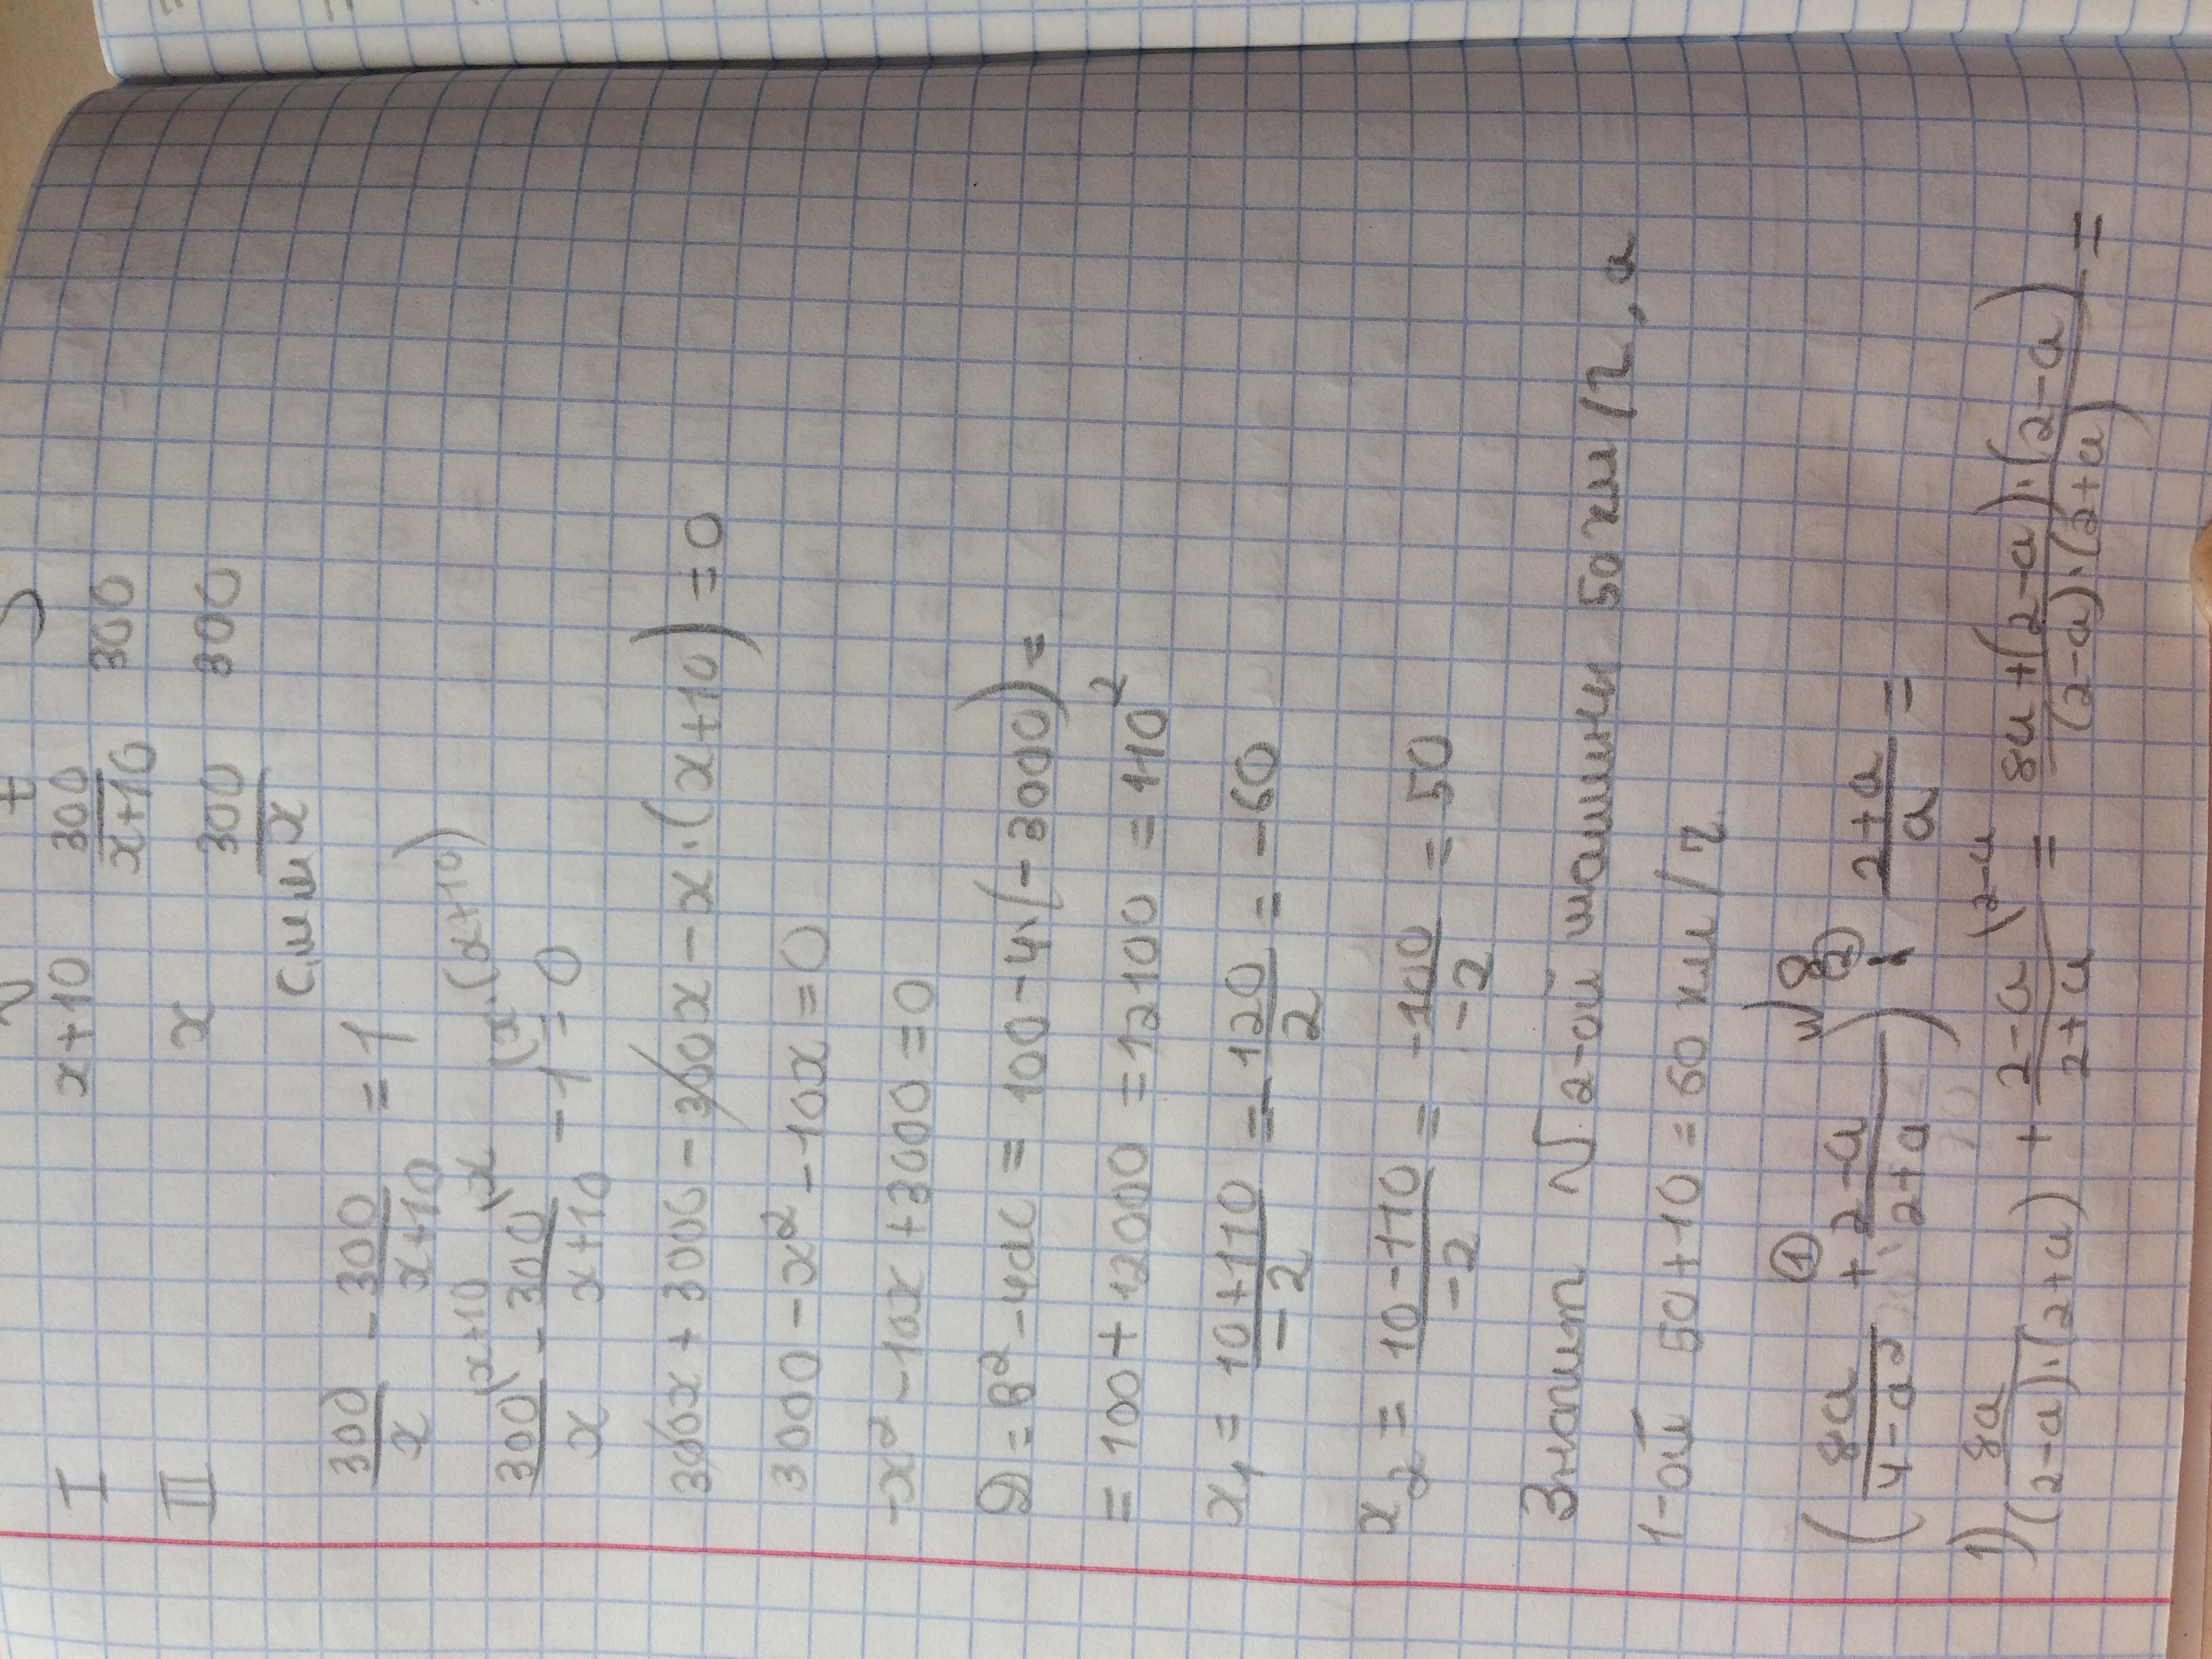 v t S
I x+10 300/(x+10) 300
II x 300/x 300
с.и.и.
300/x - 300/(x+10) = 1
300\x+10/x - 300\x/(x+10) - 1\x·(x+10) = 0
300x + 3000 - 300x - x·(x+10) = 0
3000 - x² - 10x = 0
-x² - 10x + 3000 = 0
D = в² - 4ac = 100 - 4·(-3000) =
= 100 + 12000 = 12100 = 110²
x₁ = (10+110)/-2 = -120/2 = -60
x₂ = (10-110)/-2 = -100/-2 = 50
Значит v 2-ой машины 50 км/г, а
1-ой 50+10=60 км/г
№8
(8a/(4-a²) +① (2-a)/(2+a)) :② (2+a)/a =
1) 8a/((2-a)·(2+a)) + (2-a)\2-a/(2+a) = (8a+(2-a)·(2-a))/((2-a)·(2+a)) =